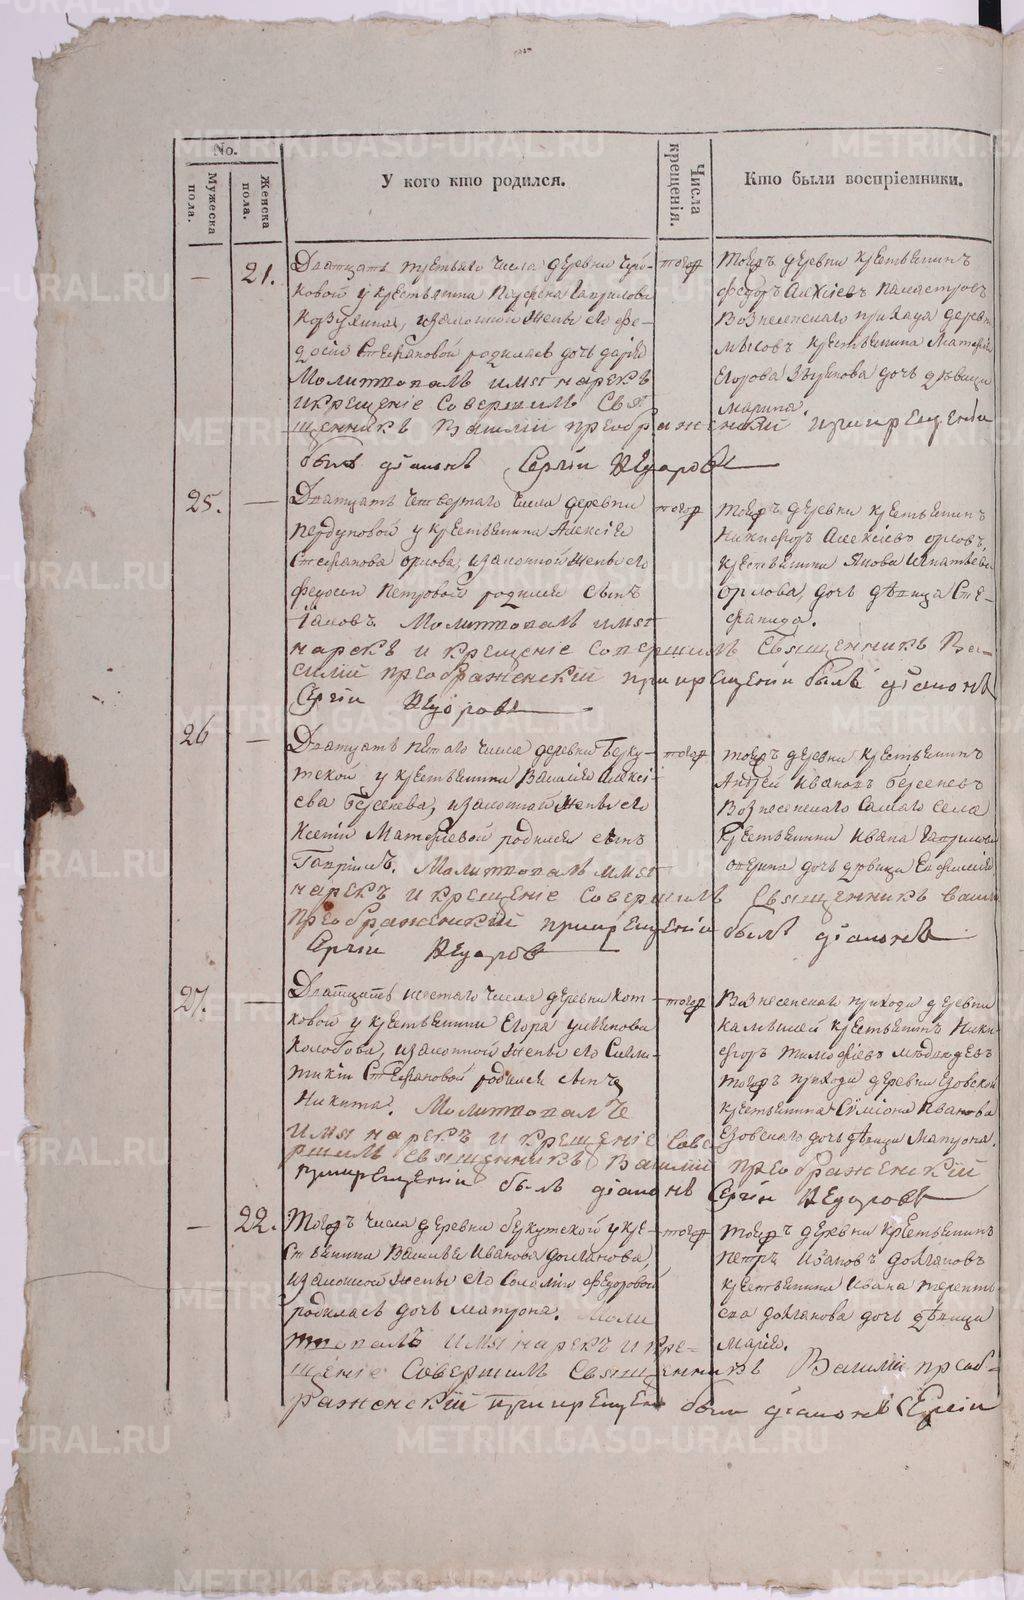 No.
Мужеска пола.
Женска пола.
У кого кто родился.
Числа крещенія.
Кто были воспріемники.
21.
Дватцать третьяго числа деревни
ковой у крестьянина Гаврилова
законной жены его Фе-
досьи Стефановой родилась дочь Дарія
Молитвовалъ имя нарекъ
и крещеніе совершилъ Свя
щенникъ Василій Преображенский при крещеніи
былъ діаконъ Сергіи
тогож
тоежъ деревни крестьянинъ
Федоръ Алексіевъ
Вознесенскаго прихода деревни
крестьянина Матфея
Егорова дочь девица
Марина
25.
Дватцать четвертаго числа деревни
у крестьянина Алексія
Стефанова Орлова, законной жены его
Федосьи Петровой родился сынъ
Іаковъ Молитвовалъ имя
нарекъ и крещеніе совершилъ Священникъ Ва-
силій Преображенский при крещеніи былъ діаконъ
Сергіи
тогож
тоежъ деревни крестьянинъ
Никифоръ Алексіевъ Орловъ,
крестьянина Якова Игнатьева
Орлова, дочь дѣвица Сте-
фанида.
26
Дватцать пятаго числа деревни Беку-
тской у крестьянина Василія Алексі-
ева Берсенева, законной жены его
Ксеніи Матфіевой родился сынъ
Гавріилъ. Молитвовалъ имя
нарекъ и крещеніе совершилъ Священникъ Васили
Преображенский при крещеніи былъ діаконъ
Сергіи
тогож
тоежъ деревни крестьянинъ
Андрей Ивановъ Берсеневъ
Вознесенскаго самаго села
крестьянина Ивана Гаврилова
дочь девица
27.
Дватцать шестаго числа деревни Кот-
ковой у крестьянина Егора
Колобова, законной жены его
Стефановой родился сынъ
Никита. Молитвовалъ
имя нарекъ и крещеніе сове
ршилъ священникъ Василий Преображенский
при крещеніи былъ діаконъ Сергіи
тогож
Вознесенскаго прихода деревни
крестьянинъ Ники
форъ Тимофіевъ
тоежъ прихода деревни Езовской
крестьянина Симіона Иванова
Езовскаго дочь дѣвица Матрона.
22.
Тогожъ числа деревни Бекутской у кре-
стьянина Василья Иванова Долганова,
законной жены его Соломіи Федоровой
родилась дочь Матрона. Моли
твовалъ имя нарекъ и кре-
щеніе совершилъ Священникъ Василій Преоб-
раженскій при крещен были діаконъ Сергіи
тогож
тоежъ деревни крестьянинъ
Петръ Ивановъ Долгановъ
крестьянина Ивана Теренть
ева Долганова дочь дѣвица
Марія.
METRIKI.GASO-URAL.RU